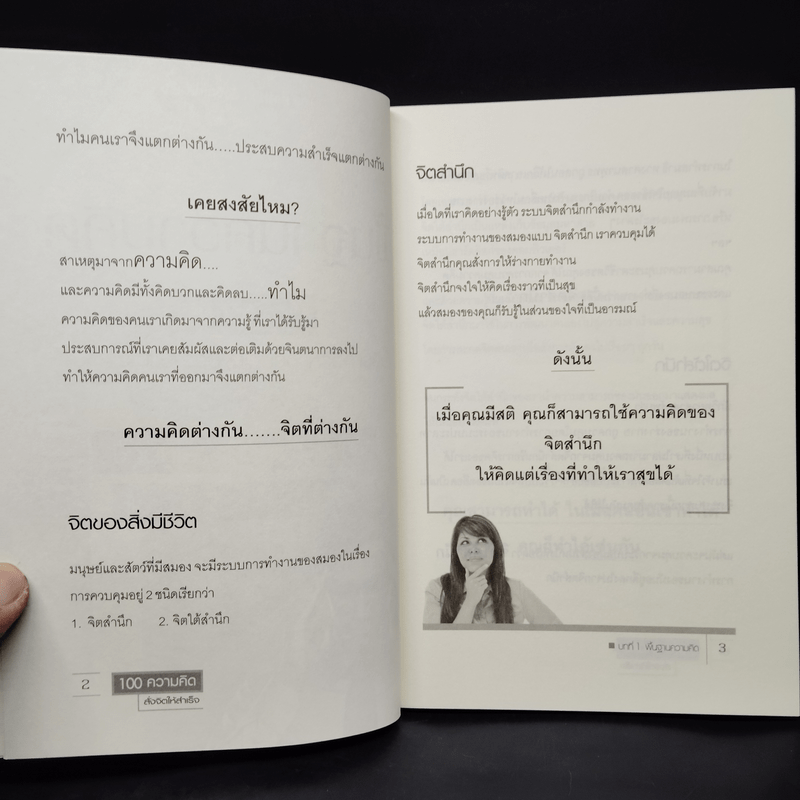 ทำไมคนเราจึงแตกต่างกัน.....ประสบความสำเร็จแตกต่างกัน
เคยสงสัยไหม?
สาเหตุมาจากความคิด....
และความคิดมีทั้งคิดบวกและคิดลบ.....ทำไม
ความคิดของคนเราเกิดมาจากความรู้ ที่เราได้รับรู้มา
ประสบการณ์ที่เราเคยสัมผัสและต่อเติมด้วยจินตนาการลงไป
ทำให้ความคิดคนเราที่ออกมาจึงแตกต่างกัน
ความคิดต่างกัน.......จิตที่ต่างกัน
จิตของสิ่งมีชีวิต
มนุษย์และสัตว์ที่มีสมอง จะมีระบบการทำงานของสมองในเรื่อง
การควบคุมอยู่ 2 ชนิดเรียกว่า
1. จิตสำนึก 2. จิตใต้สำนึก
2 100 ความคิด
สั่งจิตให้สำเร็จ
จิตสำนึก
เมื่อใดที่เราคิดอย่างรู้ตัว ระบบจิตสำนึกกำลังทำงาน
ระบบการทำงานของสมองแบบ จิตสำนึก เราควบคุมได้
จิตสำนึกคุณสั่งการให้ร่างกายทำงาน
จิตสำนึกจงใจให้คิดเรื่องราวที่เป็นสุข
แล้วสมองของคุณก็รับรู้ในส่วนของใจที่เป็นอารมณ์
ดังนั้น
เมื่อคุณมีสติ คุณก็สามารถใช้ความคิดของ
จิตสำนึก
ให้คิดแต่เรื่องที่ทำให้เราสุขได้
บทที่ 1 พื้นฐานความคิด 3